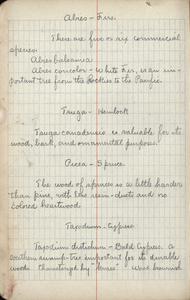 Abies - Firs.
There are five or six commercial
species:
Abies balsamia
Abies concolor - white fir, is an im-
portant tree from the Rockies to the Pacific.
Tsuga - Hemlock
Tsuga canadensis is valuable for its
wood, bark, and ornamental purposes.
Picea - Spruce.
The wood of spruces is a little harder
than pine, with the resin-ducts and no
colored heartwood.
Taxodium - Cypress.
Taxodium distichum - Bald Cypress. A
southern swamp-tree important for its durable
wood. Characterized by "knees"